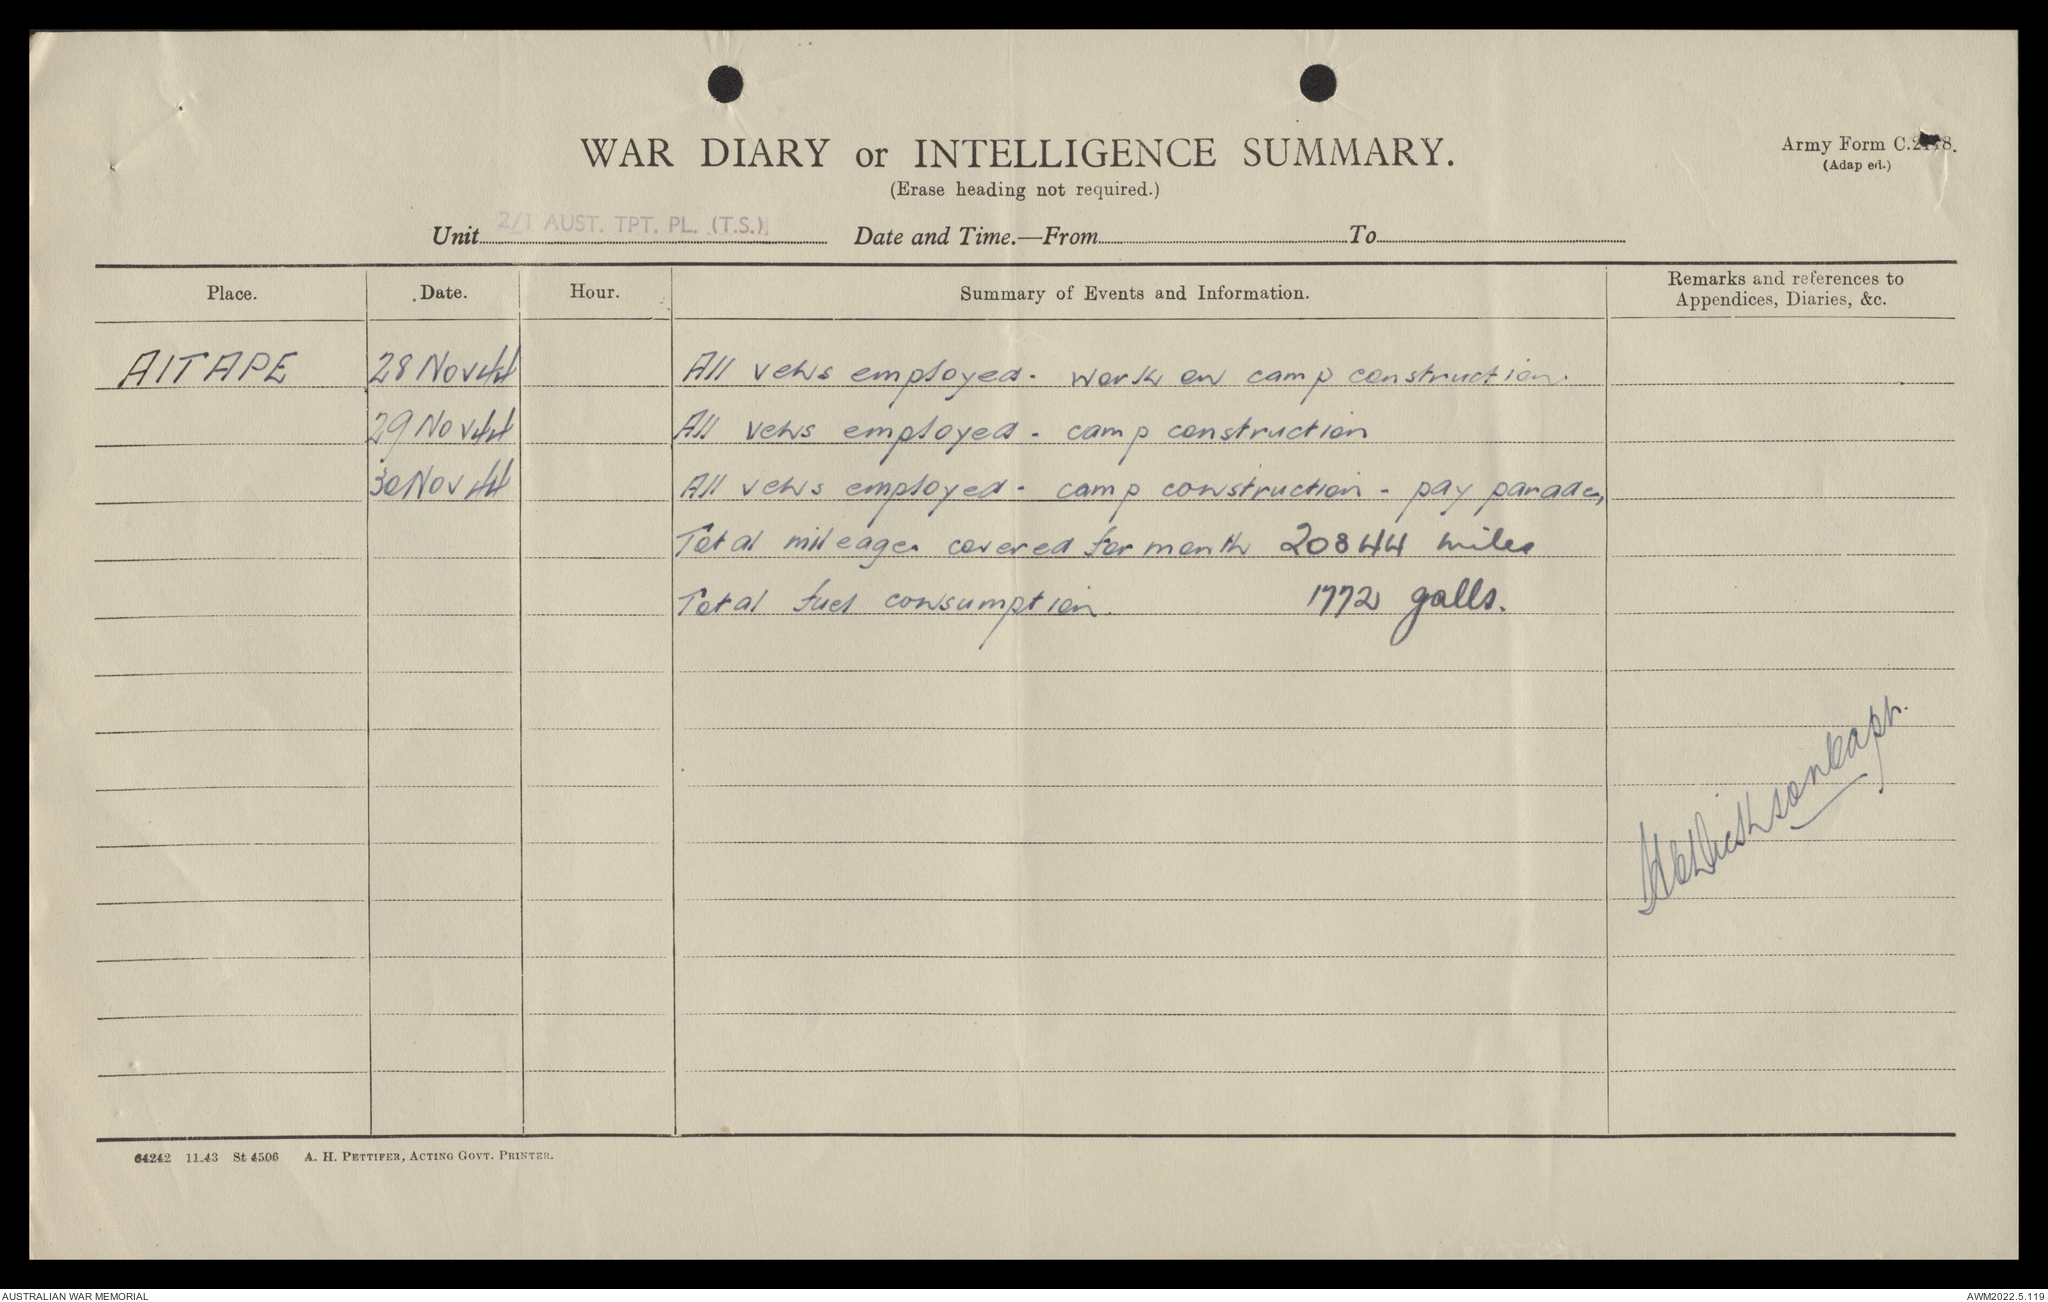 WAR DIARY or INTELLIGENCE SUMMARY.
(Erase heading not required.)
Army Form C.2118.
(Adapted.)
Unit 2/1 AUST. TPT. PL. (T.S.) Date and Time.—From To
Place. Date. Hour. Summary of Events and Information. Remarks and references to Appendices, Diaries, &c.
AITAPE 28 Nov 44 All vehs employed - work on camp construction.
29 Nov 44 All vehs employed - camp construction
30 Nov 44 All vehs employed - camp construction - pay parade,
Total mileage covered for month 20844 miles
Total fuel consumption 1772 galls.
Capt.
64242 11.43 St 4506 A. H. PETTIFER, ACTING GOVT. PRINTER.
AUSTRALIAN WAR MEMORIAL AWM2022.5.119